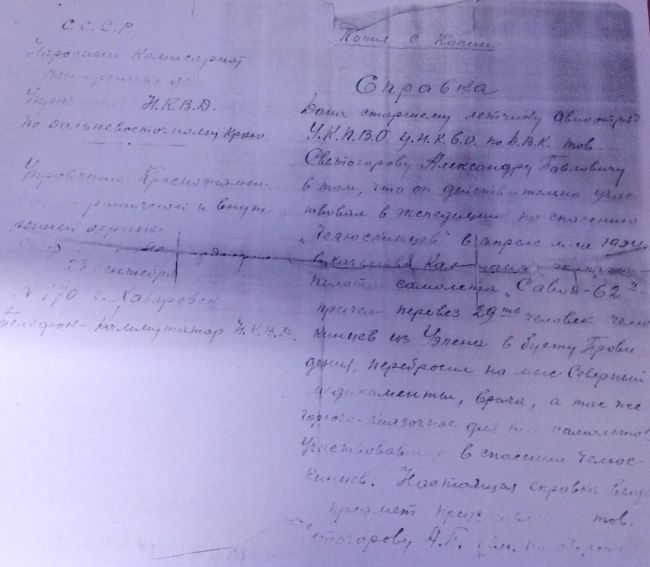 С.С.С.Р.
Народный Комисариат
Внутренних де
Упра Н.К.В.Д.
по Дальневосточному Краю
Управление Краснознамен
и внут
охраны
23 сентября
№ 170 г. Хабаровск
Телефон-Коммутатор Н.К.В.Д.
Копия с Копии
Справка
Дана старшему летчику авиаотряд
У.К.П.В.О У.Н.К.В.О. по Д.В.К. тов.
Святогорову Александру Павловичу
в том, что он действительно учас
твовал в экспедиции по спасению
„Челюскинцев" в апреле м-це 1934г.
в
пилота самолета „Савоя-62"
причем перевез 29ть человек челю
скинцев из Уэлена в бухту Прови
дения, перебросил на мыс Северный
медикаменты, врача, а так же
горюче-смазочное для самолетов
участвовавш в спасении челюс-
кинцев. Настоящая справка выда
предмет тов.
Святогорову А.П.